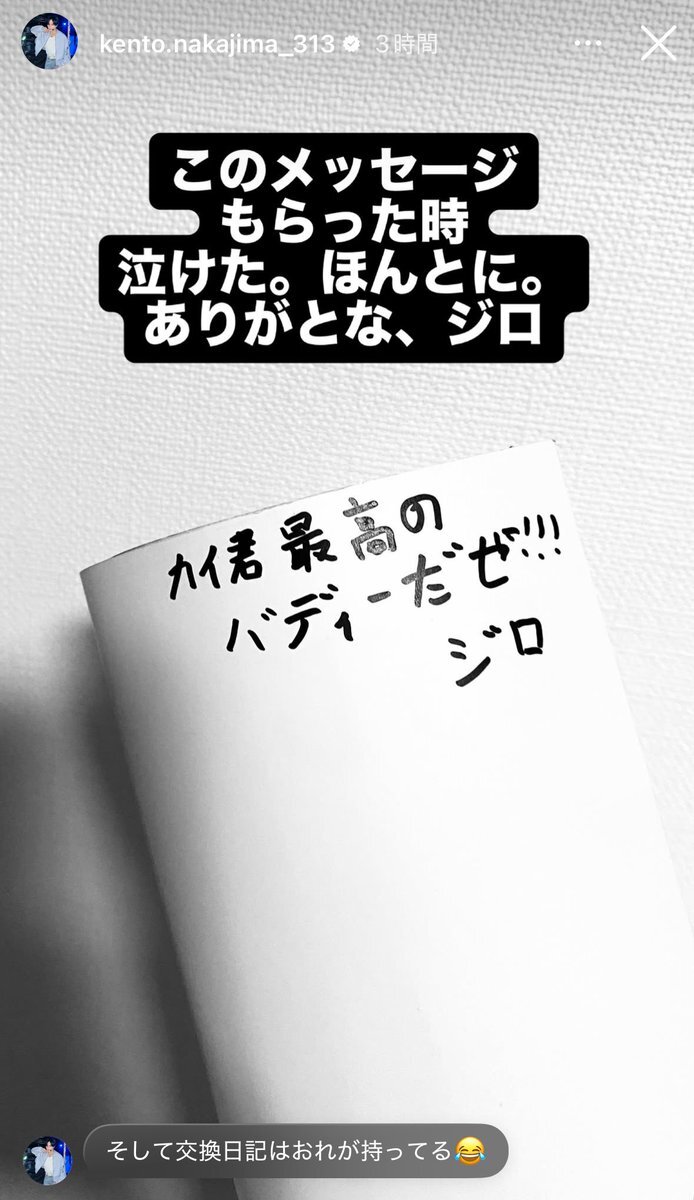 kento.nakajima_313 3時間
このメッセージ
もらった時
泣けた。ほんとに。
ありがとな、ジロ
カイ君最高の
バディーだぜ!!!
ジロ
そして交換日記はおれが持ってる😂